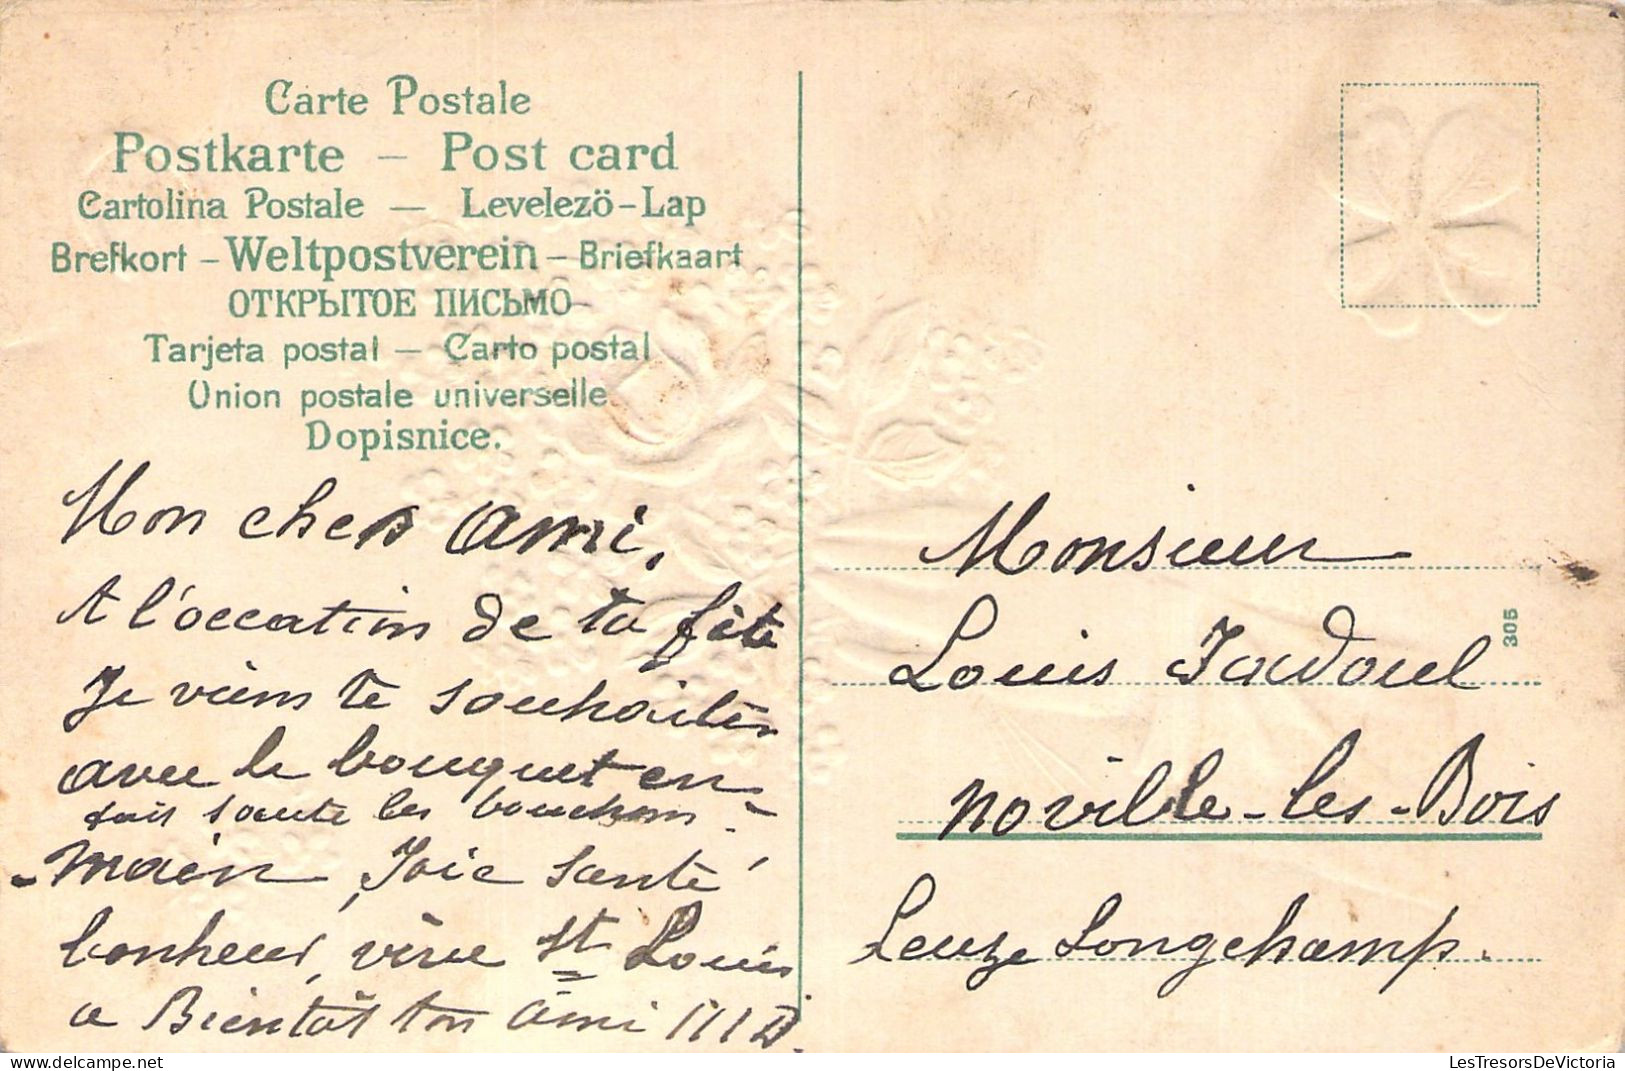 Carte Postale
Postkarte – Post card
Cartolina Postale — Levelezö-Lap
Brefkort – Weltpostverein – Briefkaart
ОТКРЫТОЕ ПИСЬМО
Tarjeta postal — Carto postal
Union postale universelle.
Dopisnice.
Mon cher ami,
A l'occation de ta fête
Je viens te souhaiter
avec le bouquet en-
fait sauté les bouchons
-main, Joie santé
bonheur, vive St Louis
a Bientôt ton ami
Monsieur
Louis Jadoul
305
Noville-les-Bois
Leuze Longchamp.
LesTresorsDeVictoria